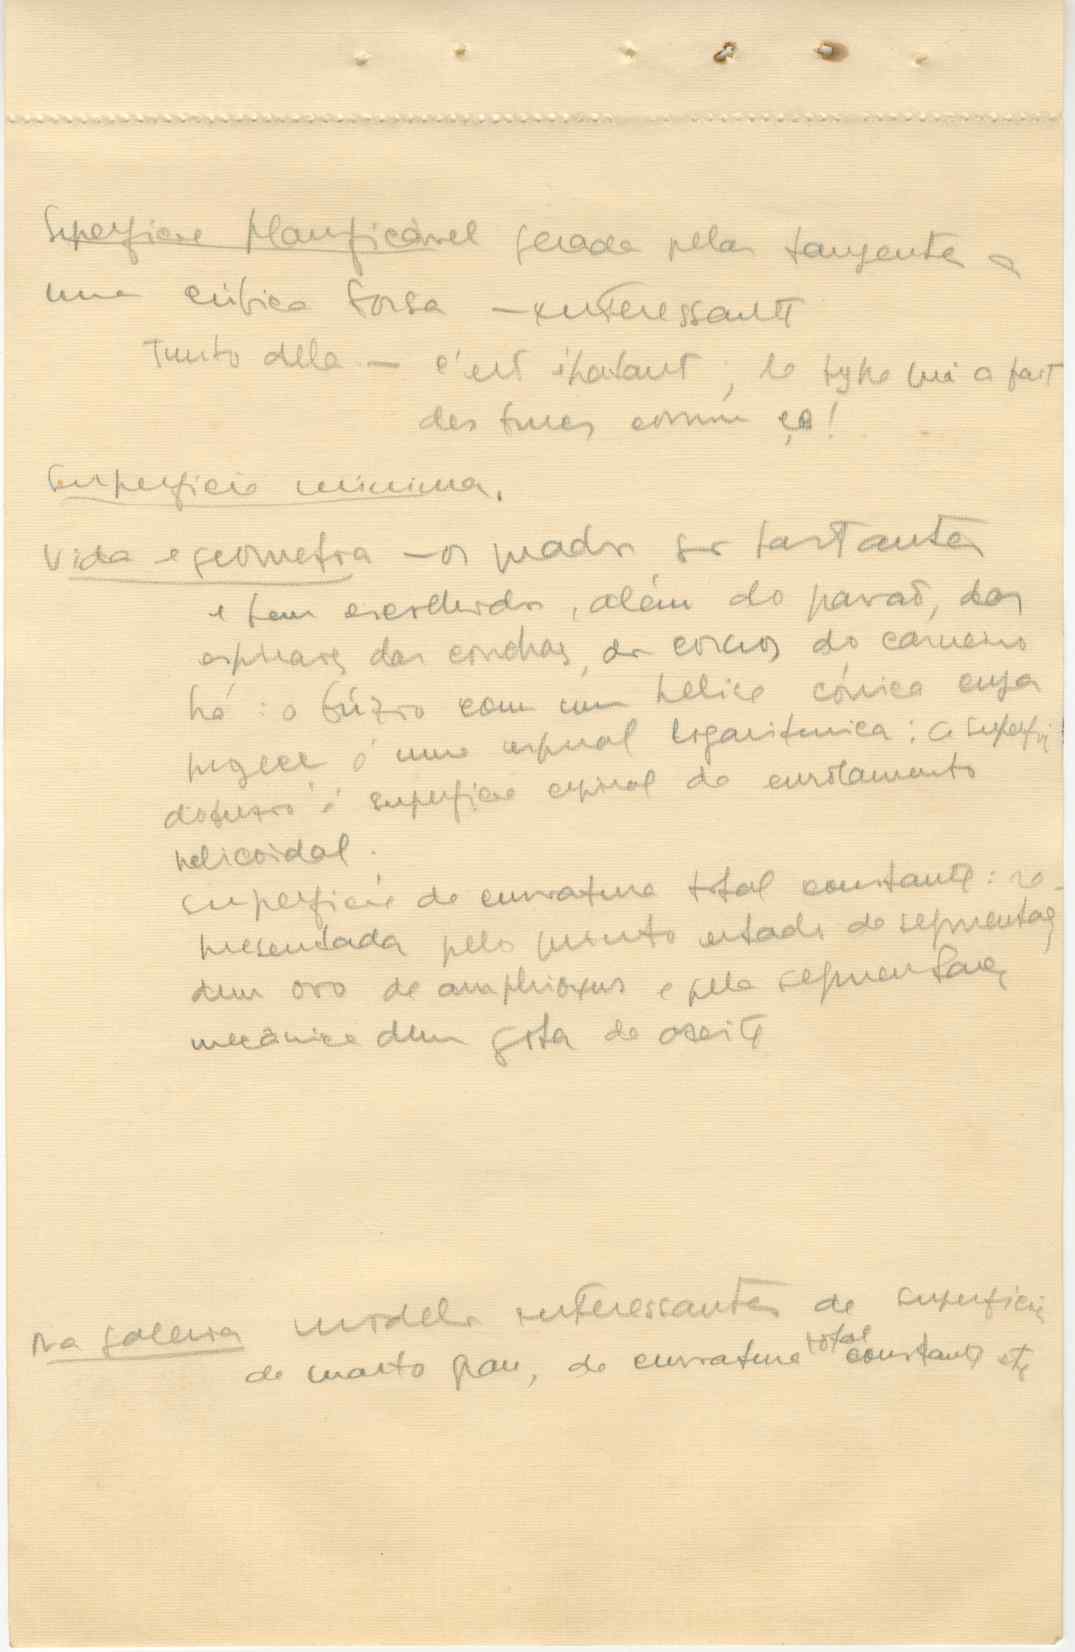 Superficie planificável gerada pelas tangentes a
uma cúbica torsa — interessante
Junto della — c'est épatant, le type qui a fait
des trucs comme ça!
Superficie minima.
Vida e geometria — os quadros são bastantes
e bem escolhidos, além do pavão, das
espiraes das conchas, dos cornos do carneiro
há: o búzio com uma helice cónica cuja
é uma espiral logaritmica: a superfi
do buzio é superficie espiral de enrolamento
helicoidal.
superficie de curvatura total constante: re-
presentada pelo quinto estado de segmentaç
dum ovo de amphioxus e pela segmentação
mecânica duma gota de azeite
Na galeria modelos interessantes de superficies
de quarto grau, de curvatura total constante etc